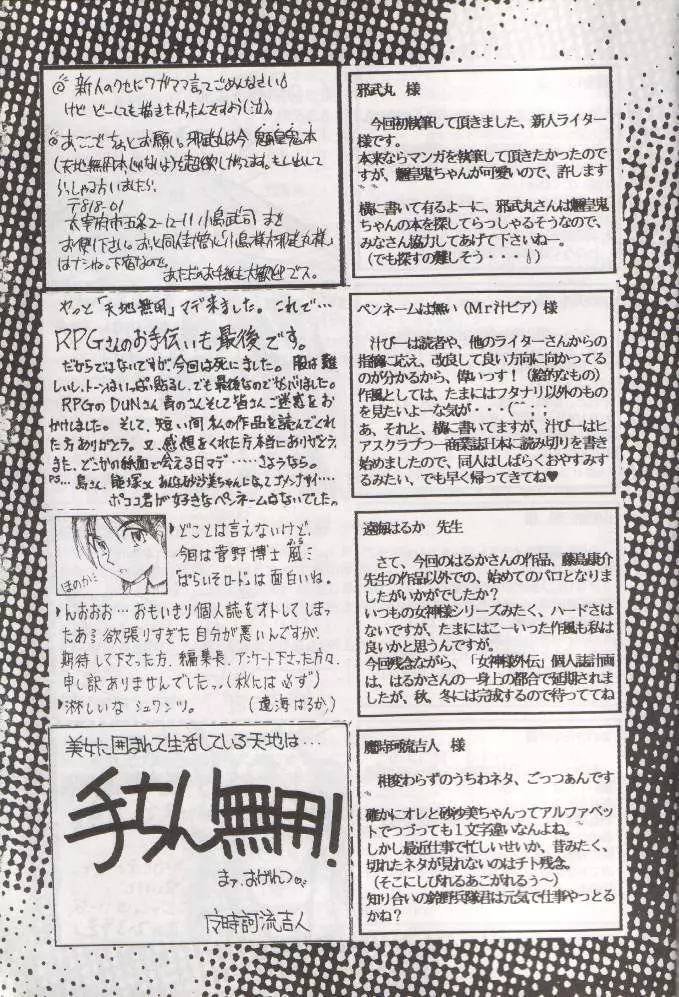 ◎新人のクセにワガママ言ってごめんなさい
けど どーしても描きたかったんですよう(泣)。
◎あとここでちょっとお願い。邪武丸は今 魎皇鬼本
(天地無用本じゃないよ)を超欲しがってます。もし出して
らっしゃる方いましたら
〒818-01
太宰府市五条2-12-11 小島武司 まで
お便り下さい。おっと同人住管に「小島様方邪武丸様」
はナシね。下宿なので。
邪武丸 様
今回初執筆して頂きました、新人ライター
様です。
本来ならマンガを執筆して頂きたかったので
すが、魎皇鬼ちゃんが可愛いので、許します
横に書いて有るよーに、邪武丸さんは魎皇鬼
ちゃんの本を探してらっしゃるそうなので、
みなさん協力してあげて下さいねー。
(でも探すの難しそう・・・;)
やっと「天地無用」マデ来ました。これで…
RPGさんのお手伝いも最後です。
だからではないですが、今回は死にました。服は難
しいし、トーンはいっぱい貼るし、でも最後なのでがんばりました。
RPGのDUNさん 責のさんそして皆さんご迷惑をお
かけしました。そして、短い間 私の作品を読んでくれ
た方ありがとう。又、感想をくれた方本当にありがとう。
また、どこかの紙面で会える日マデ……さようなら。
ポココ君が好きなペンネームはないでした。
ペンネームは無い(Mr汁ピア)様
汁ぴーは読者や、他のライターさんからの
指摘に応え、改良して良い方向に向かってる
のが分かるから、偉いっす!(絵的なもの)
作風としては、たまにはフタナリ以外のもの
を見たいよーな気が・・・(^^;;
あ、それと、横に書いてますが、汁ぴーはヒ
アスクラブっー商業誌日本に読み切りを書き
始めましたので、同人はしばらくおやすみす
るみたい、でも早く帰ってきてね♥
ほのか
どことは言えないけど、
今回は菅野博士風ミ
「ぱらいそロード」は面白いね。
んおおお…おもいきり個人誌をオトしてしまっ
たあ3欲張りすぎた自分が悪いんですが、
期待して下さった方、編集長、アンケート下さった方々、
申し訳ありませんでしたっ。(秋には必ず)
淋しいな シュワンツ。 (遠海はるか)
遠海はるか 先生
さて、今回のはるかさんの作品、藤島康介
先生の作品以外での、始めてのパロとなりま
したがいかがでしたか?
いつもの女神様シリーズみたく、ハードさは
ないですが、たまにはこーいった作風も私は
良いかと思うんですが。
今回残念ながら、「女神様外伝」個人誌計画
は、はるかさんの一身上の都合で延期されま
したが、秋、冬には完成するので待っててね
美女に囲まれて生活している天地は…
手ちん無用!
魔時珂流吉人
魔時珂流吉人 様
相変わらずのうちわネタ、ごっつぁんです
確かにオレと砂沙美ちゃんってアルファベッ
トでつづっても1文字違いなんよね。
しかし最近仕事で忙しいせいか、昔みたく、
切れたネタが見れないのはチト残念。
(そこにしびれるあこがれるう~)
知り合いの鈴野兵隊君は元気で仕事やっとる
かね?